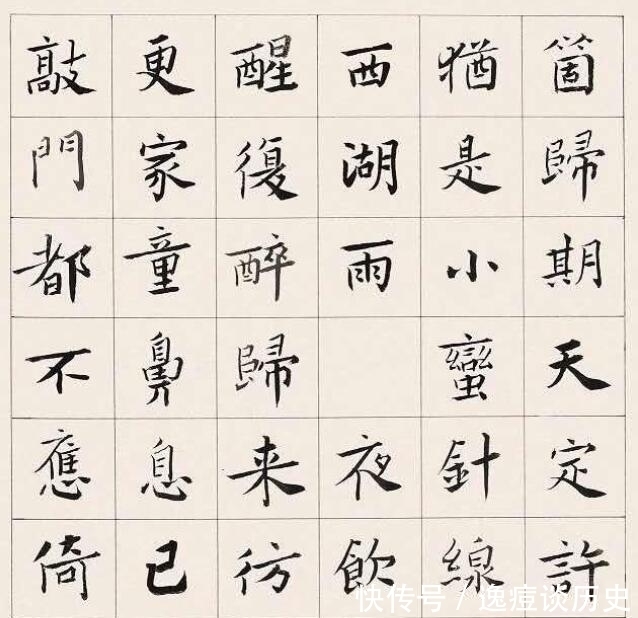 箇歸期天定許
猶是小蠻針線
西湖雨 夜飲
醒復醉歸来彷
更家童鼻息已
敲門都不應倚
快传号 / 逸痘谈历史